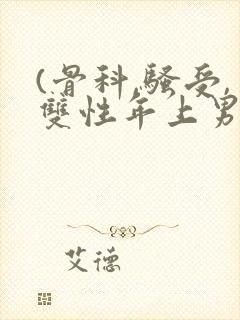 (骨科,骚受,
雙性年上男
艾德